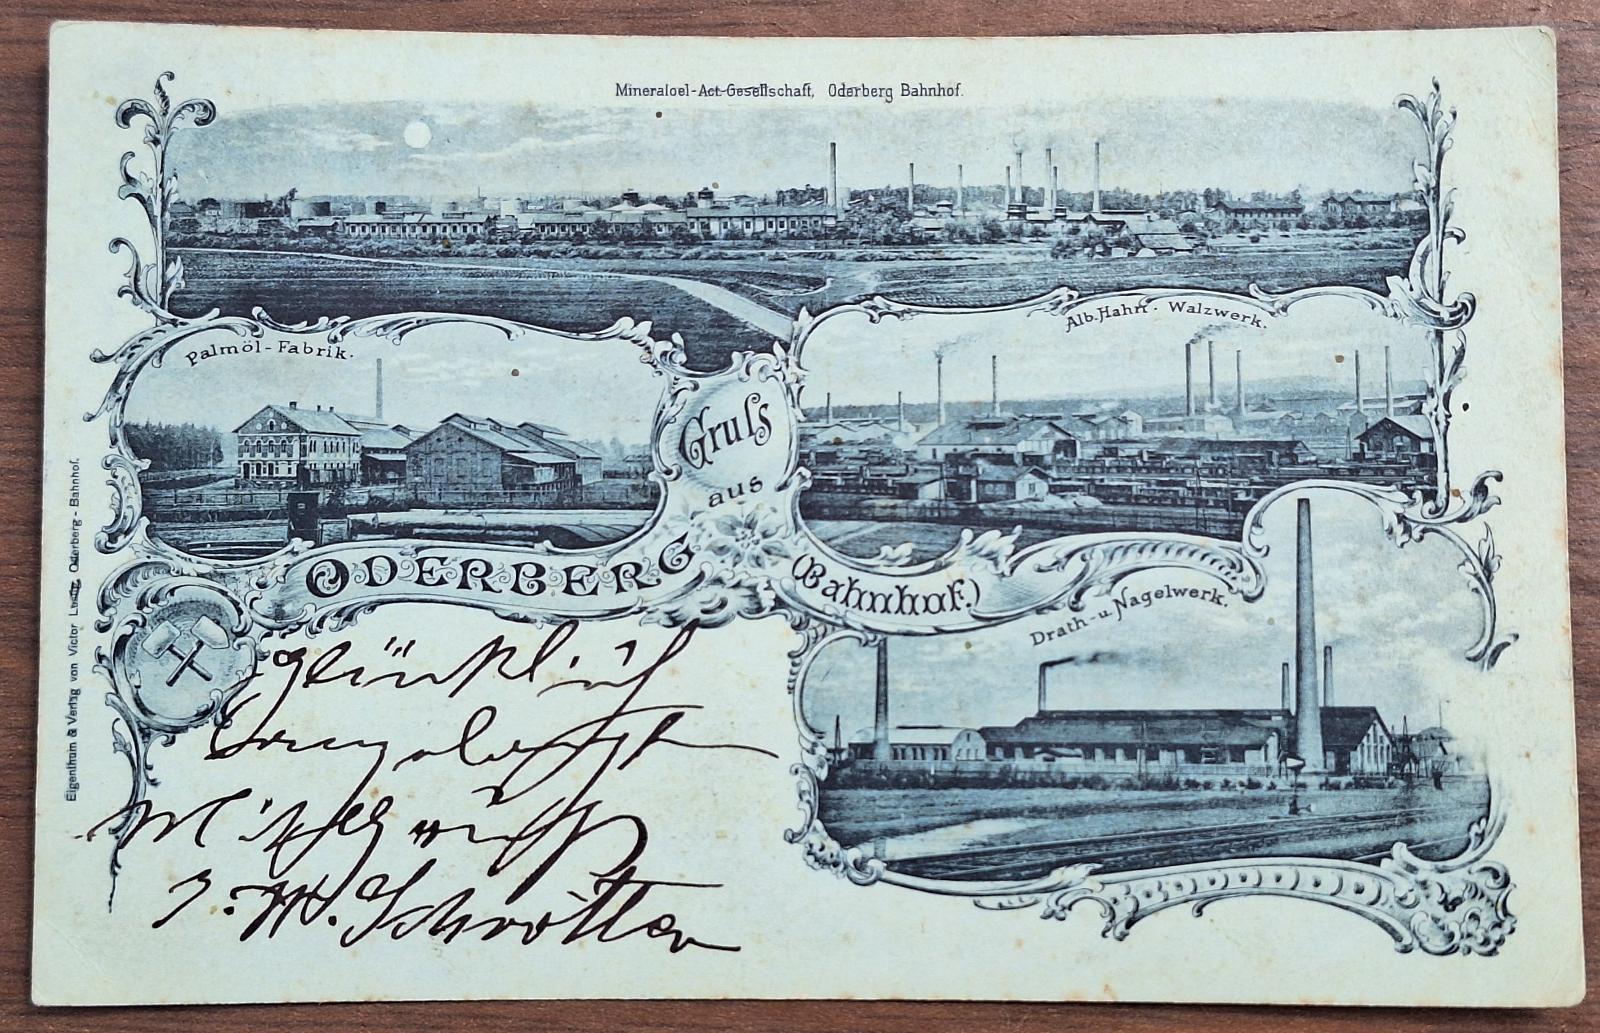 Mineraloel-Act-Gesellschaft, Oderberg Bahnhof.
Palmöl-Fabrik.
Alb. Hahn - Walzwerk.
Gruſs
aus
ODERBERG (Bahnhof.)
Drath-u. Nagelwerk.
Eigenthum & Verlag von Victor Lustig, Oderberg-Bahnhof.
Glücklich
angelangt
Schrötter